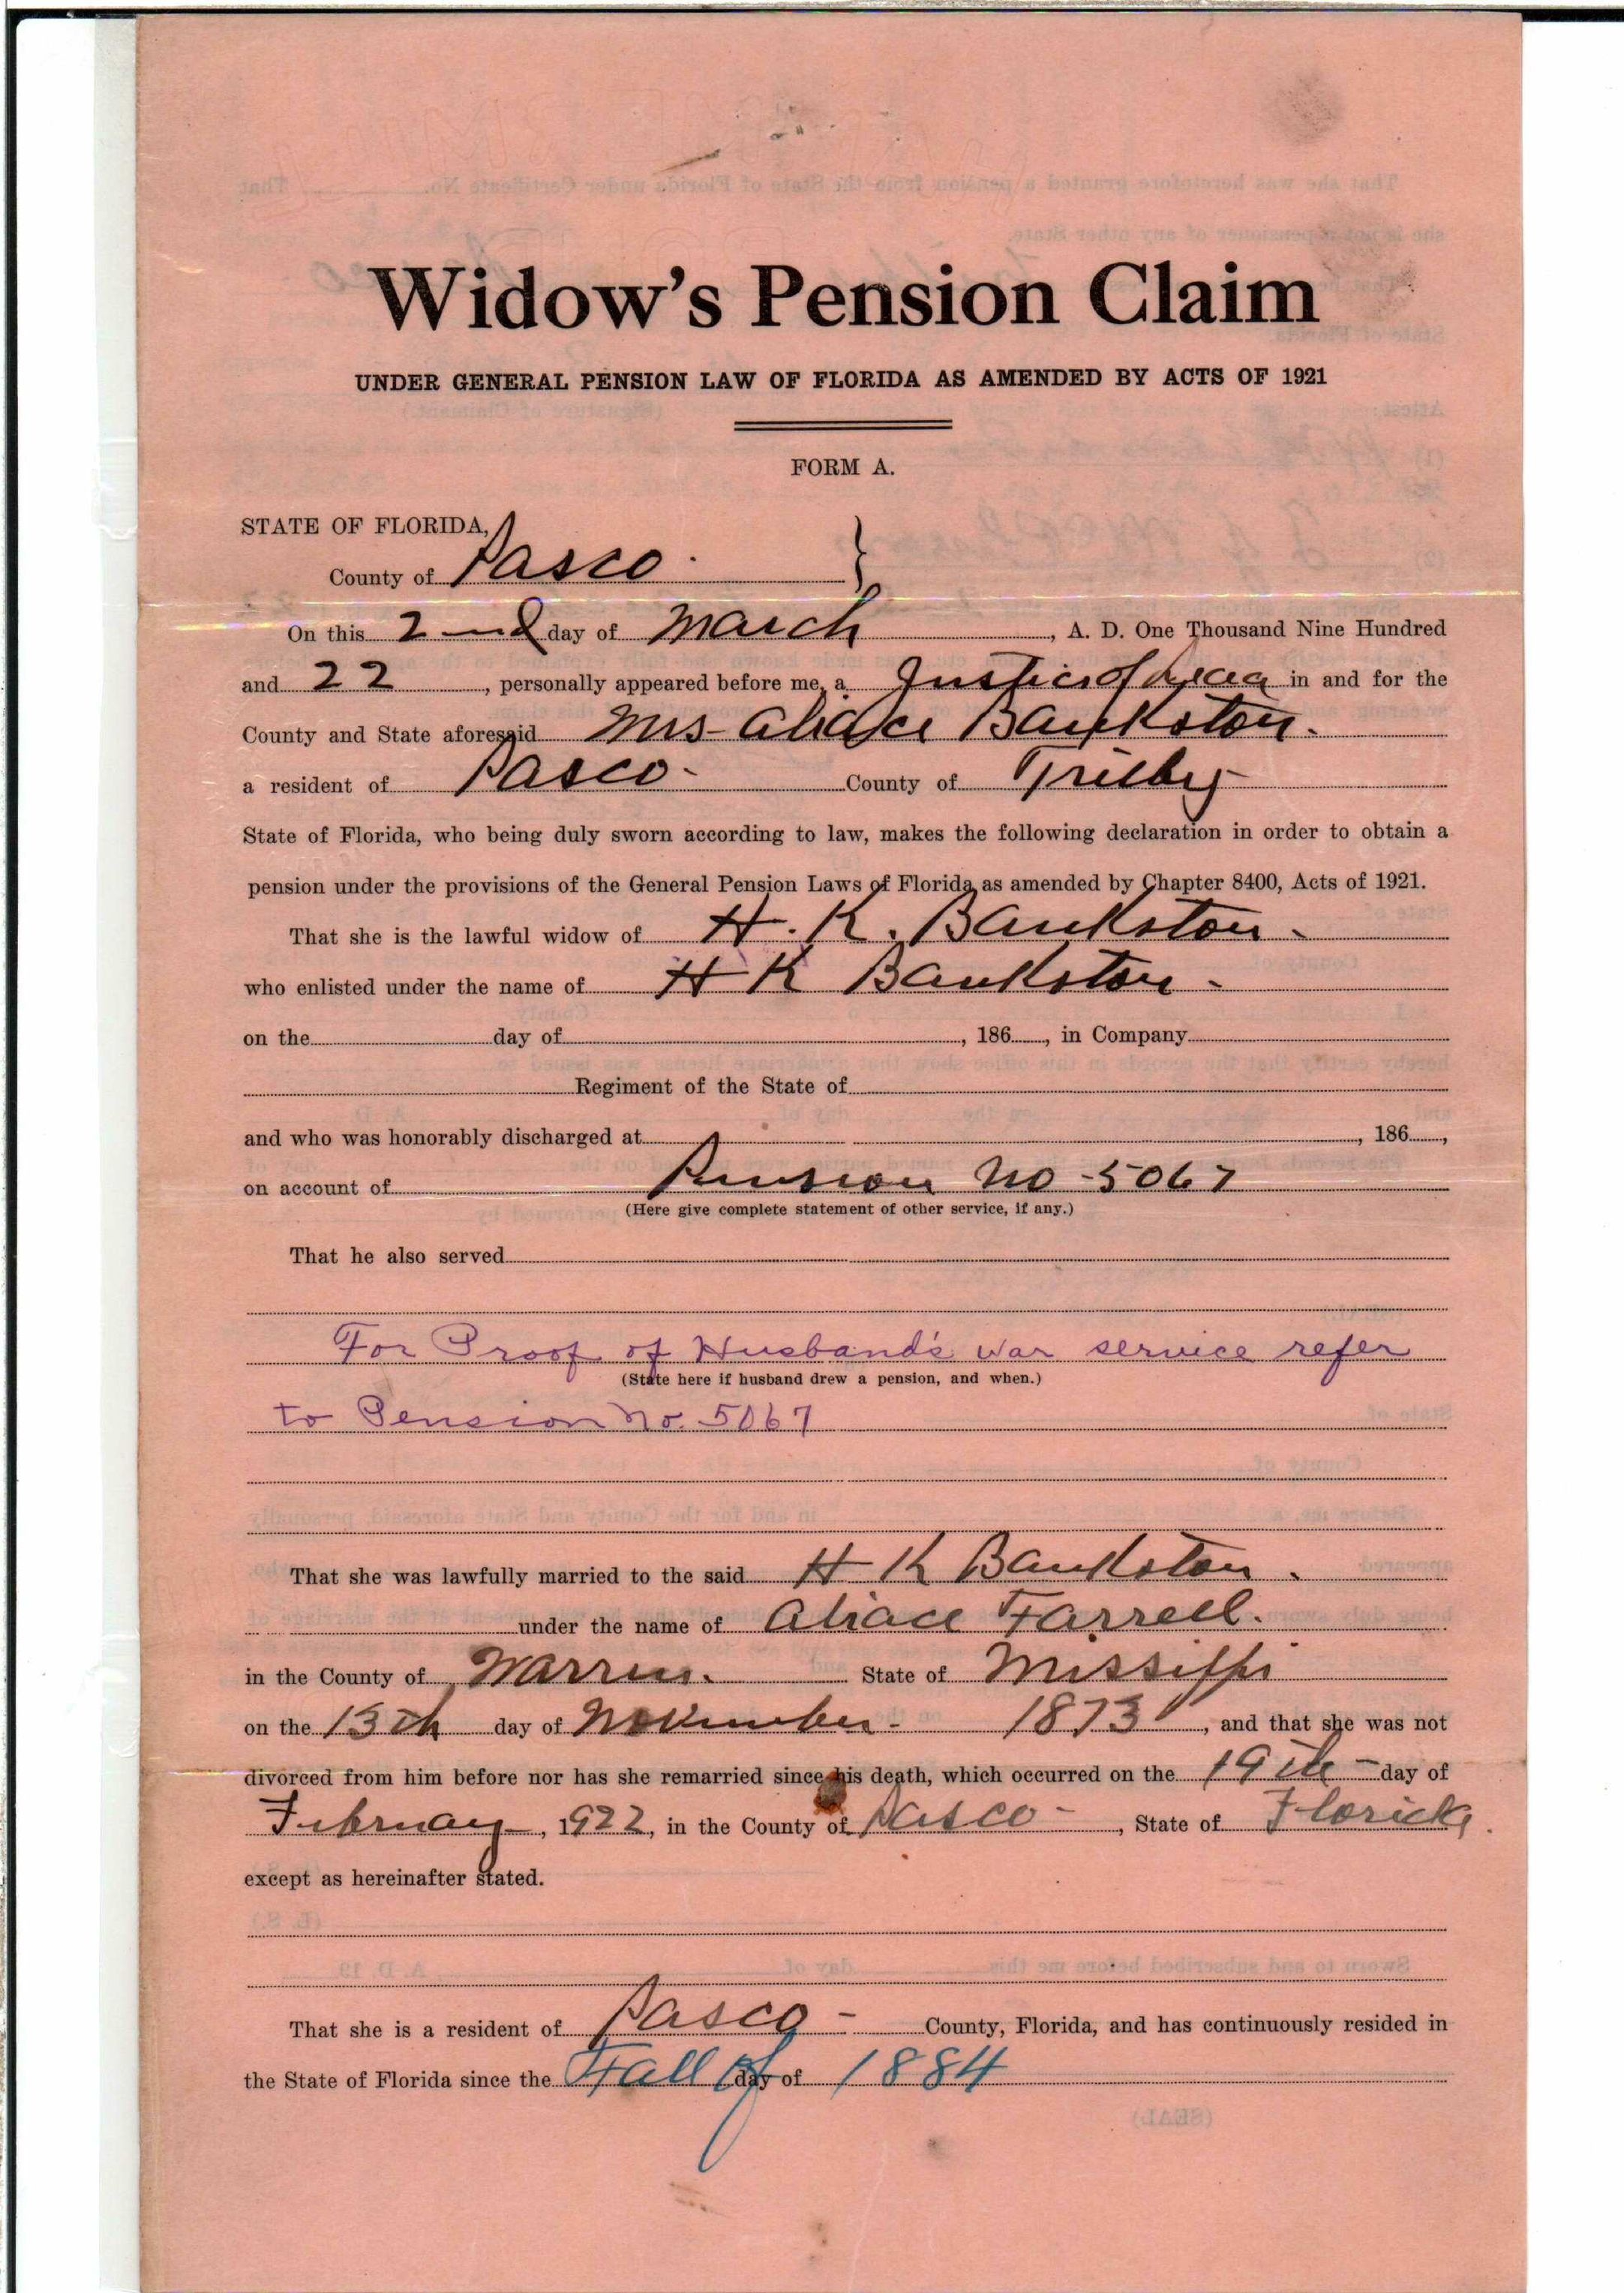 Widow's Pension Claim
UNDER GENERAL PENSION LAW OF FLORIDA AS AMENDED BY ACTS OF 1921
FORM A.
STATE OF FLORIDA,
County of Pasco
On this 2nd day of March, A. D. One Thousand Nine Hundred
and 22, personally appeared before me, a Justice of in and for the
County and State aforesaid Mrs Bankston.
a resident of Pasco County of Trilby
State of Florida, who being duly sworn according to law, makes the following declaration in order to obtain a
pension under the provisions of the General Pension Laws of Florida as amended by Chapter 8400, Acts of 1921.
That she is the lawful widow of H. K. Bankston
who enlisted under the name of H K Bankston
on the day of , 186 , in Company
Regiment of the State of
and who was honorably discharged at , 186 ,
on account of Pension No 5067
(Here give complete statement of other service, if any.)
That he also served
For Proof of Husband's war service refer
(State here if husband drew a pension, and when.)
to Pension No. 5067
That she was lawfully married to the said H K Bankston.
under the name of Aliace Farrell.
in the County of Warren. State of Missippi
on the 13th day of November 1873, and that she was not
divorced from him before nor has she remarried since his death, which occurred on the 19th day of
February, 1922, in the County of Pasco, State of Florida.
except as hereinafter stated.
That she is a resident of Pasco County, Florida, and has continuously resided in
the State of Florida since the Fall of day of 1884